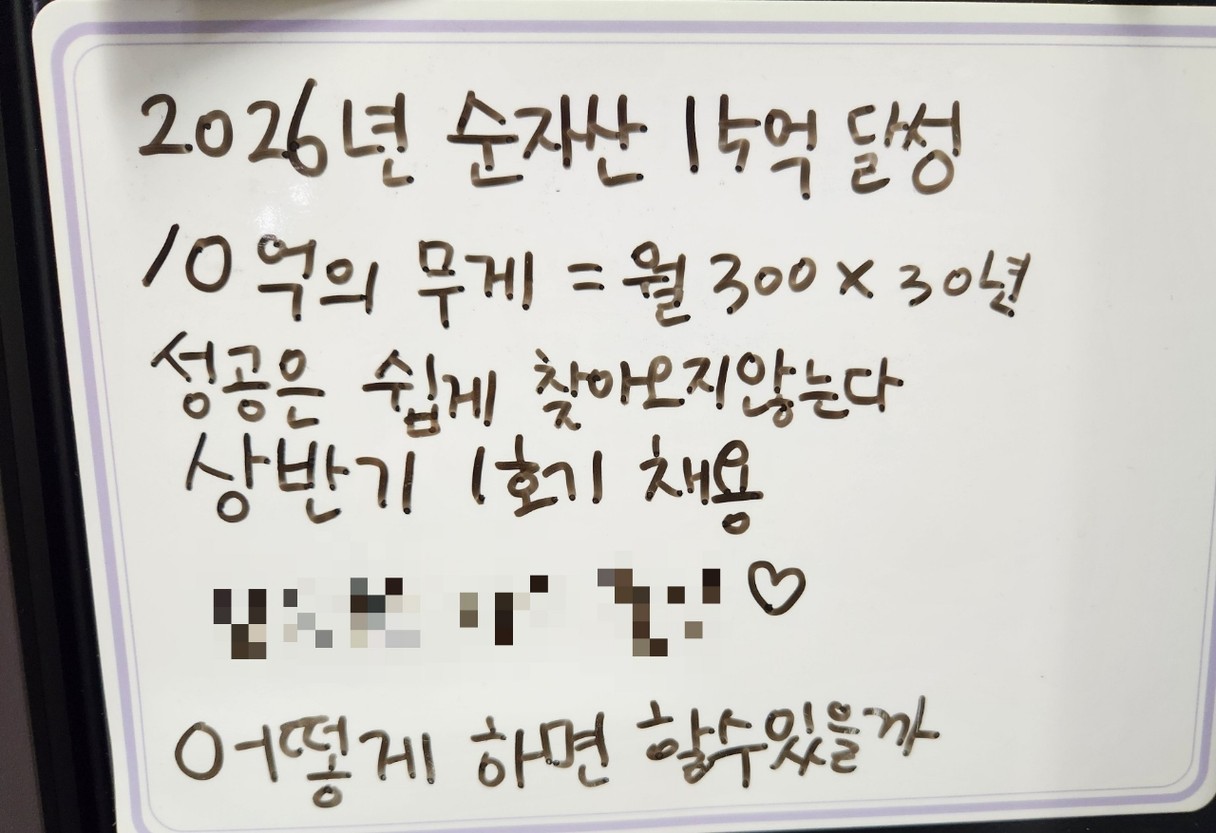 2026년 순자산 15억 달성
10억의 무게 = 월 300 × 30년
성공은 쉽게 찾아오지않는다
상반기 1호기 채용
♡
어떻게 하면 할수있을까